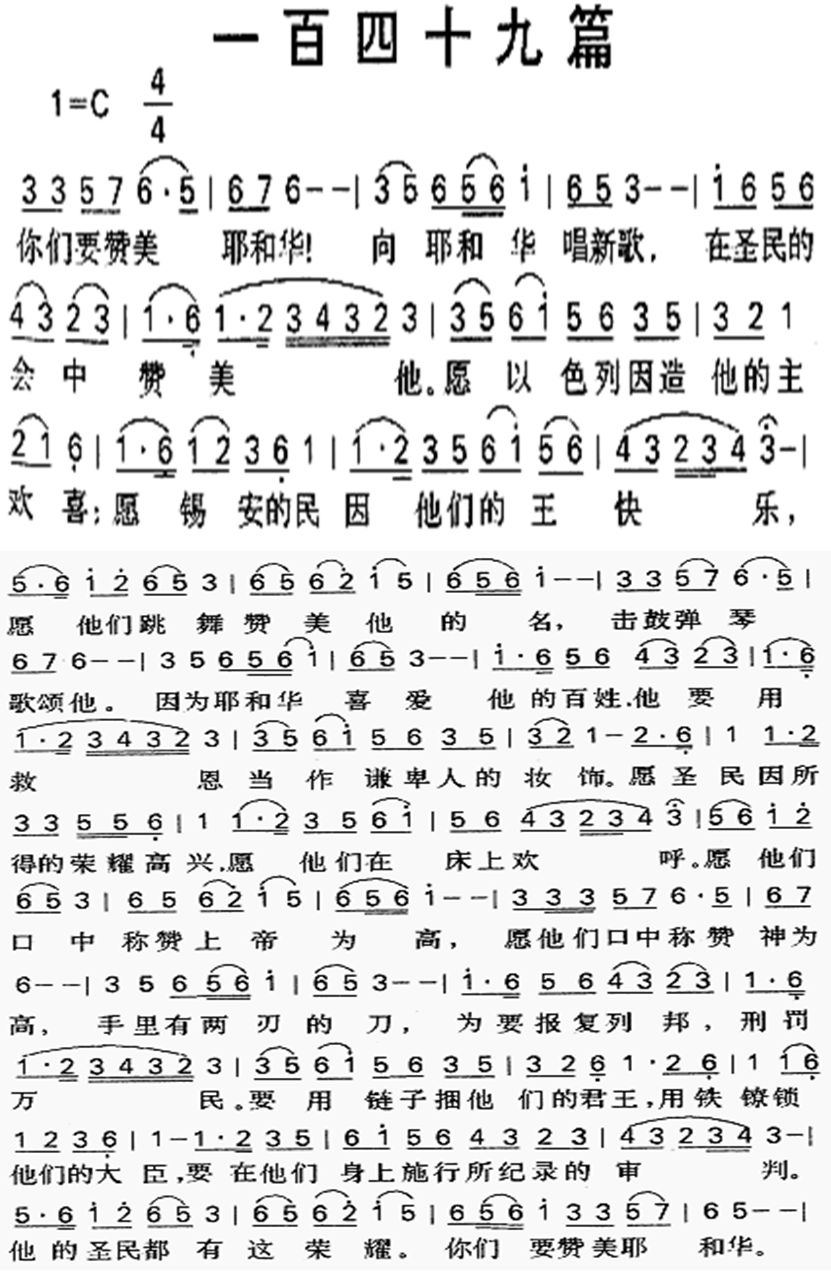 一百四十九篇
1=C 4/4
3 3 5 7 6·5 | 6 7 6 - - | 3 5 6 5 6 i | 6 5 3 - - | i 6 5 6
你们要赞美 耶和华! 向 耶和 华 唱新歌, 在圣民的
4 3 2 3 | 1·6 1·2 3 4 3 2 3 | 3 5 6 i 5 6 3 5 | 3 2 1
会 中 赞 美 他。愿 以 色列因造 他的主
2 1 6 | 1·6 1 2 3 6 1 | 1·2 3 5 6 i 5 6 | 4 3 2 3 4 3 - |
欢 喜; 愿 锡 安的民 因 他们的 王 快 乐,
5·6 i 2 6 5 3 | 6 5 6 2 i 5 | 6 5 6 i - - | 3 3 5 7 6·5 |
愿 他们跳 舞 赞 美 他 的 名, 击鼓弹 琴
6 7 6 - - | 3 5 6 5 6 i | 6 5 3 - - | i·6 5 6 4 3 2 3 | 1·6
歌颂他。 因为耶和华 喜 爱 他 的百姓.他 要 用
1·2 3 4 3 2 3 | 3 5 6 i 5 6 3 5 | 3 2 1 - 2·6 | 1 1·2
救 恩 当 作 谦卑人的 妆 饰。愿圣 民因所
3 3 5 5 6 | 1 1·2 3 5 6 i | 5 6 4 3 2 3 4 3 | 5 6 i 2
得的荣耀高 兴.愿 他们在 床上欢 呼。愿 他们
6 5 3 | 6 5 6 2 i 5 | 6 5 6 i - - | 3 3 3 5 7 6·5 | 6 7
口 中 称赞上 帝 为 高, 愿他们口中称赞 神为
6 - - | 3 5 6 5 6 i | 6 5 3 - - | i·6 5 6 4 3 2 3 | 1·6
高, 手里有两 刃 的 刀, 为要报复列 邦, 刑罚
1·2 3 4 3 2 3 | 3 5 6 i 5 6 3 5 | 3 2 6 1·2 6 | 1 1 6
万 民。要 用 链子捆他 们的君王,用铁 镣锁
1 2 3 6 | 1 - 1·2 3 5 | 6 i 5 6 4 3 2 3 | 4 3 2 3 4 3 - |
他们的大 臣,要 在他们 身上施行所纪录的 审 判。
5·6 i 2 6 5 3 | 6 5 6 2 i 5 | 6 5 6 i 3 3 5 7 | 6 5 - - |
他 的圣民都 有 这 荣 耀。 你们 要赞美耶 和华。